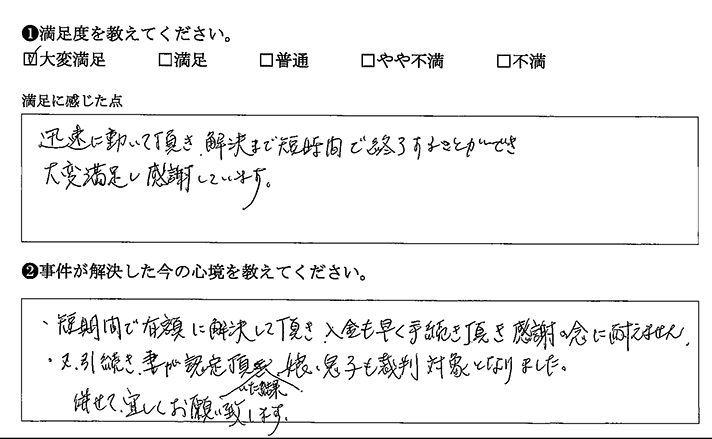 ❶満足度を教えてください。
☑大変満足 □満足 □普通 □やや不満 □不満
満足に感じた点
迅速に動いて頂き、解決まで短時間で終了することができ
大変満足し感謝しています。
❷事件が解決した今の心境を教えてください。
・短期間で有額に解決して頂き、入金も早く手続き頂き感謝の念に耐えません。
・又、引続き、妻が認定頂 娘、息子も裁判対象となりました。
いた結果
併せて、宜しくお願い致します。